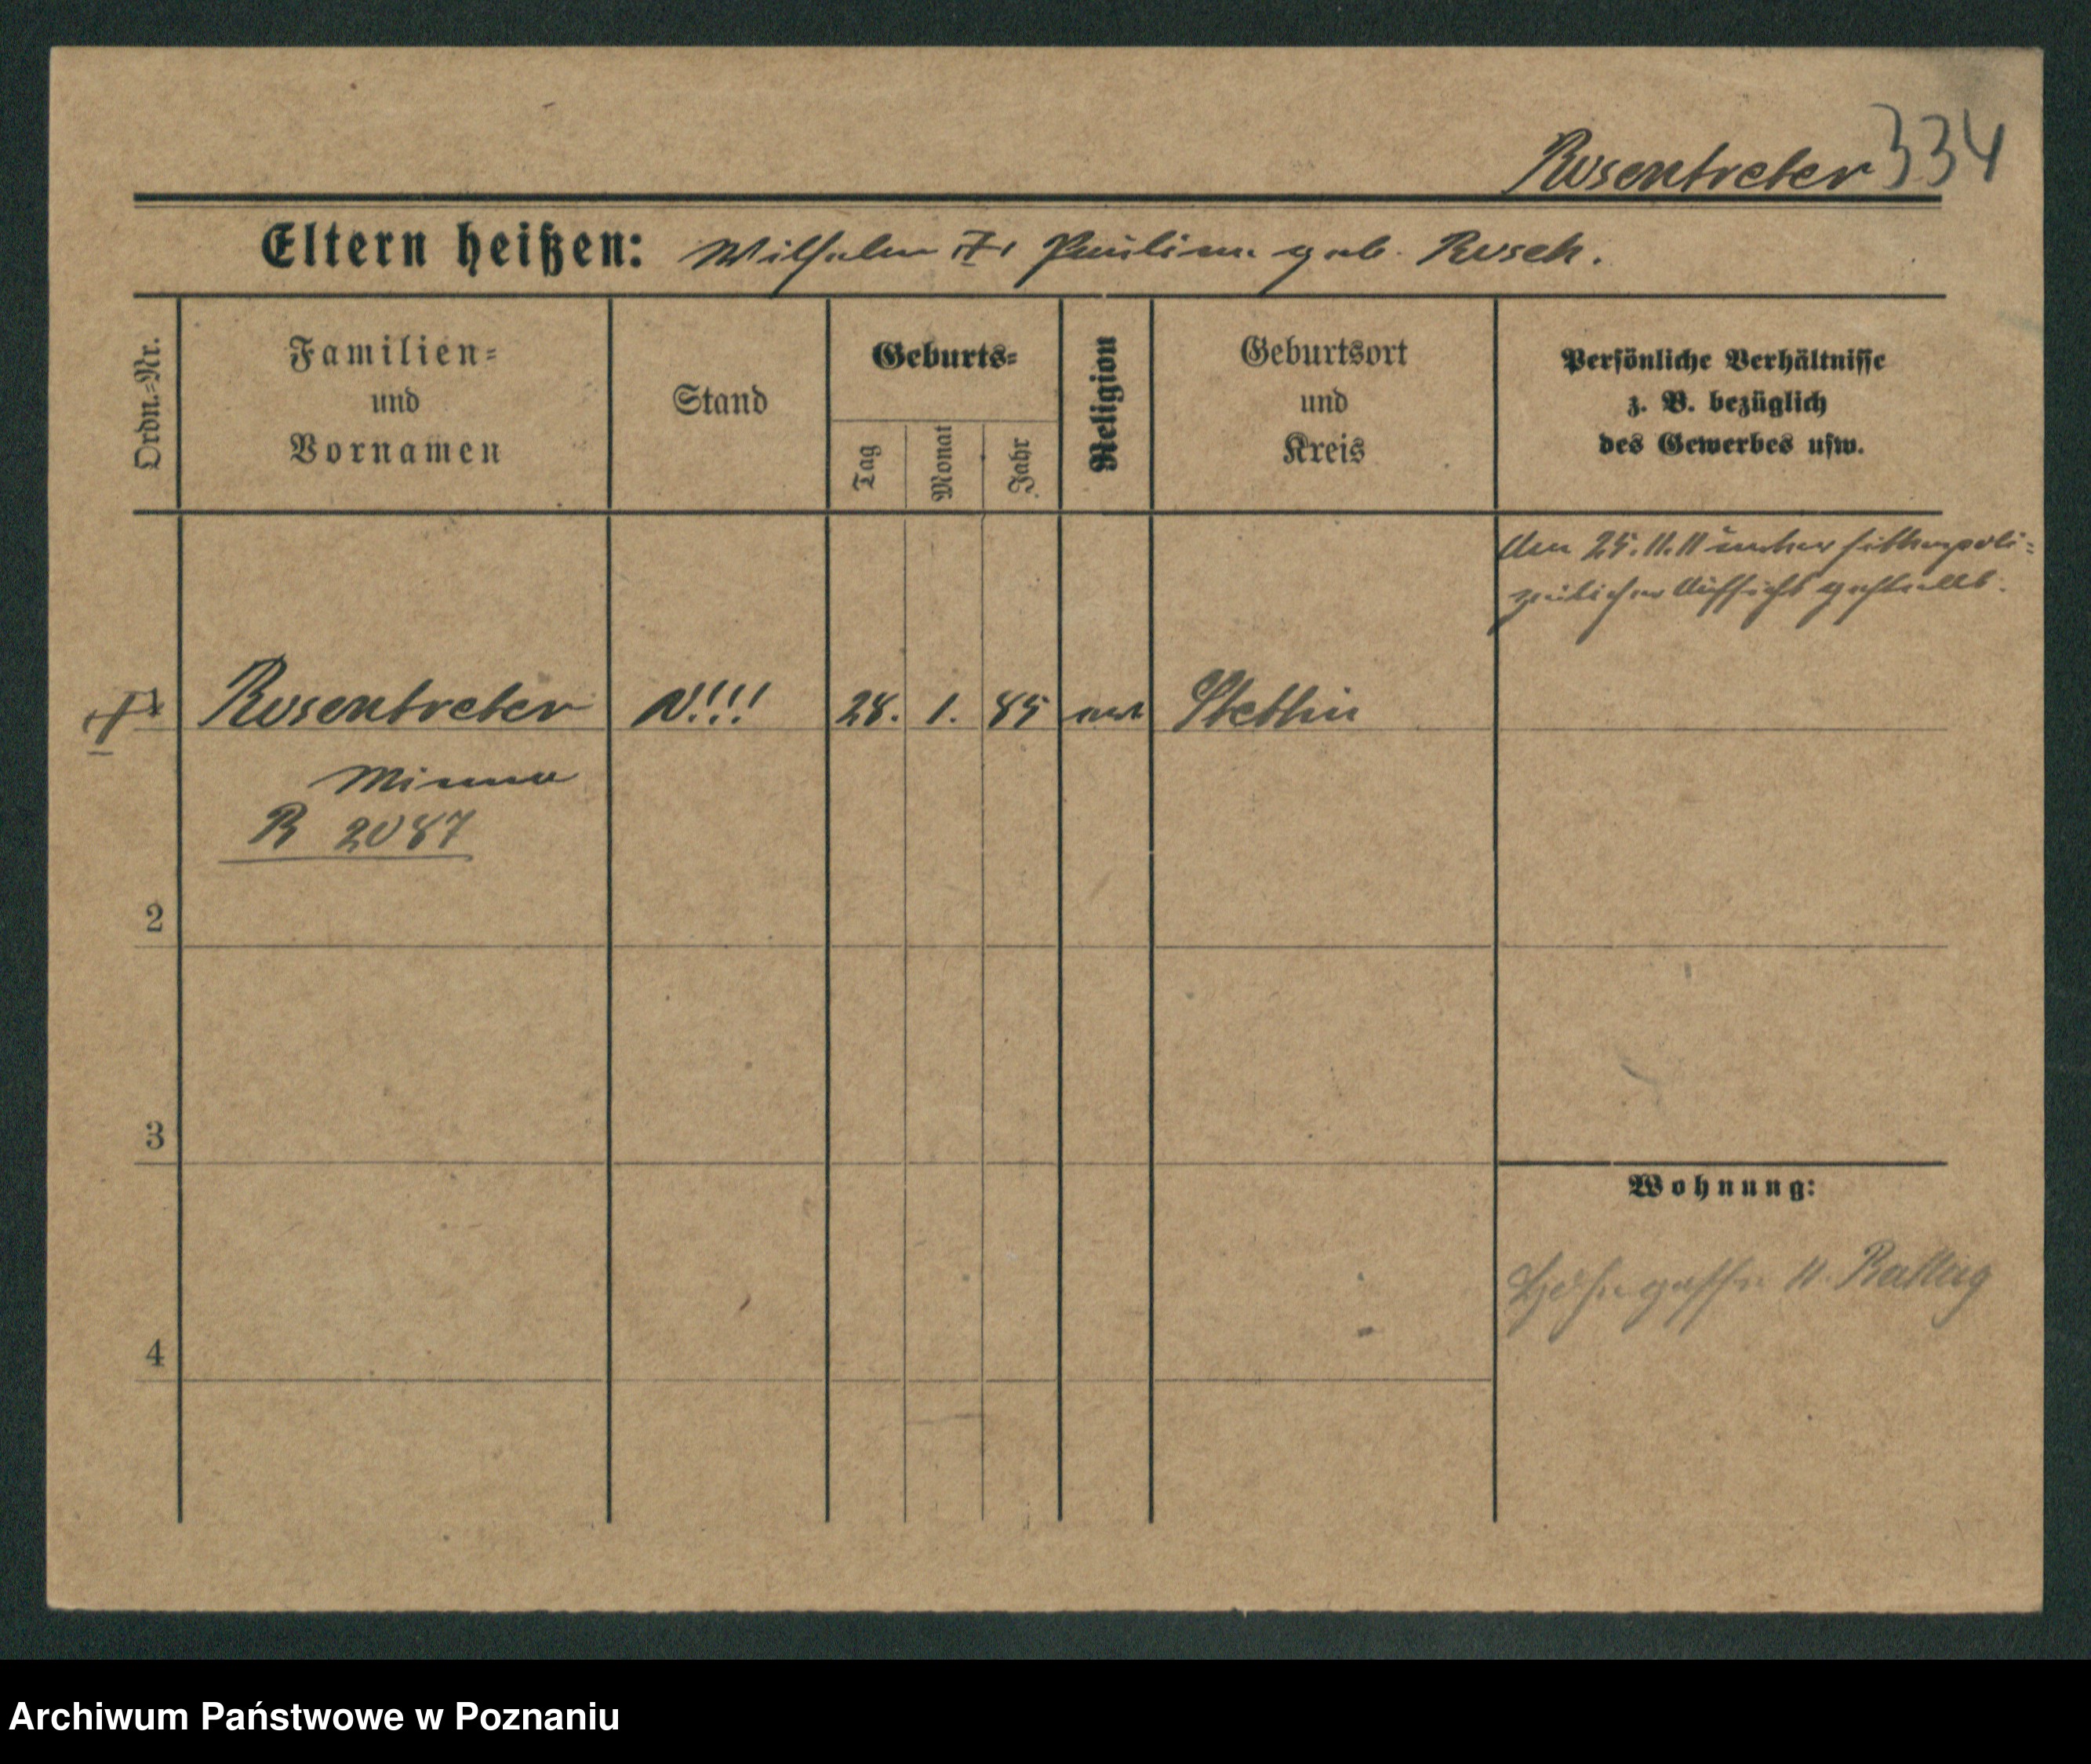 Rosentreter 334
Eltern heißen: Wilhelm u. Pauline geb. Rosch.
Ordn.-Nr.
Familien-
und
Vornamen
Stand
Geburts-
Tag
Monat
Jahr
Religion
Geburtsort
und
Kreis
Persönliche Verhältnisse
z. B. bezüglich
des Gewerbes usw.
Am 25.11.11 unter sittenpoli-
zeilicher Aufsicht gestellt.
1 Rosentreter N!!! 28. 1. 85 Stettin
Minna
R 2087
2
3
Wohnung:
11.
4
Archiwum Państwowe w Poznaniu